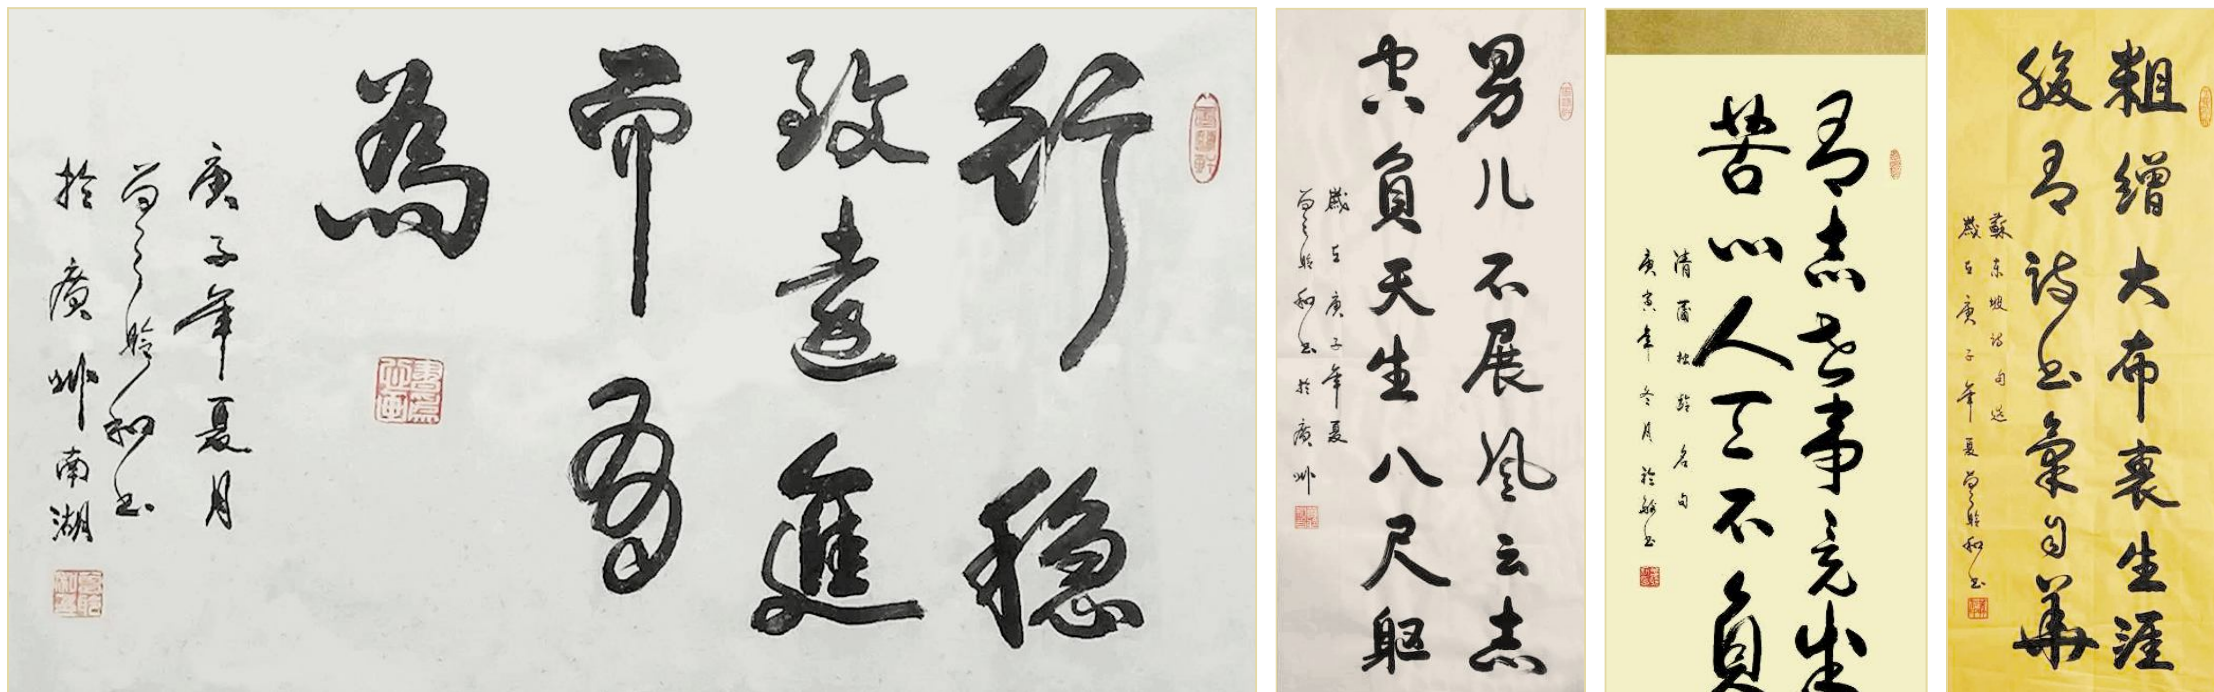 行稳
致遠進
而有
為
庚子年夏月
和书
於廣州南湖
男儿不展风云志
空負天生八尺躯
歲在庚子年夏
和书於廣州
有志者事竟成
苦心人天不負
清蒲松龄名句
庚寅年冬月於书
粗繒大布裹生涯
腹有詩书氣自華
蘇东坡诗句选
歲在庚子年夏和书